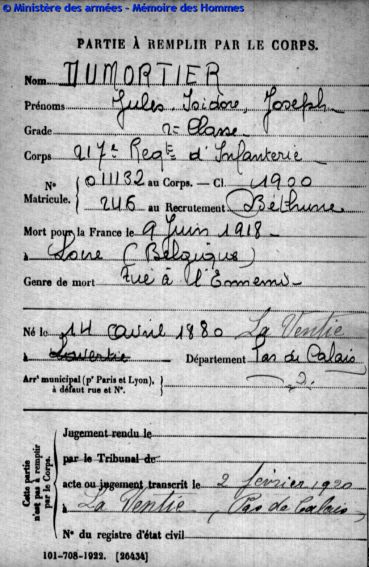 © Ministère des armées - Mémoire des Hommes
PARTIE À REMPLIR PAR LE CORPS.
Nom DUMORTIER
Prénoms Jules, Isidore, Joseph
Grade 2e Classe
Corps 217e Regt d'Infanterie
N° Matricule. 011132 au Corps. — Cl 1900
246 au Recrutement Béthune
Mort pour la France le 9 Juin 1918
à Locre (Belgique)
Genre de mort Tué à l'Ennemi
Né le 14 Avril 1880 La Ventie
à Laventie Département Pas de Calais
Arrt municipal (pr Paris et Lyon),
à défaut rue et N°.
Cette partie n'est pas à remplir par le Corps.
Jugement rendu le
par le Tribunal de
acte ou jugement transcrit le 2 février 1920
à La Ventie, (Pas de Calais)
N° du registre d'état civil
101-708-1922. [26434]